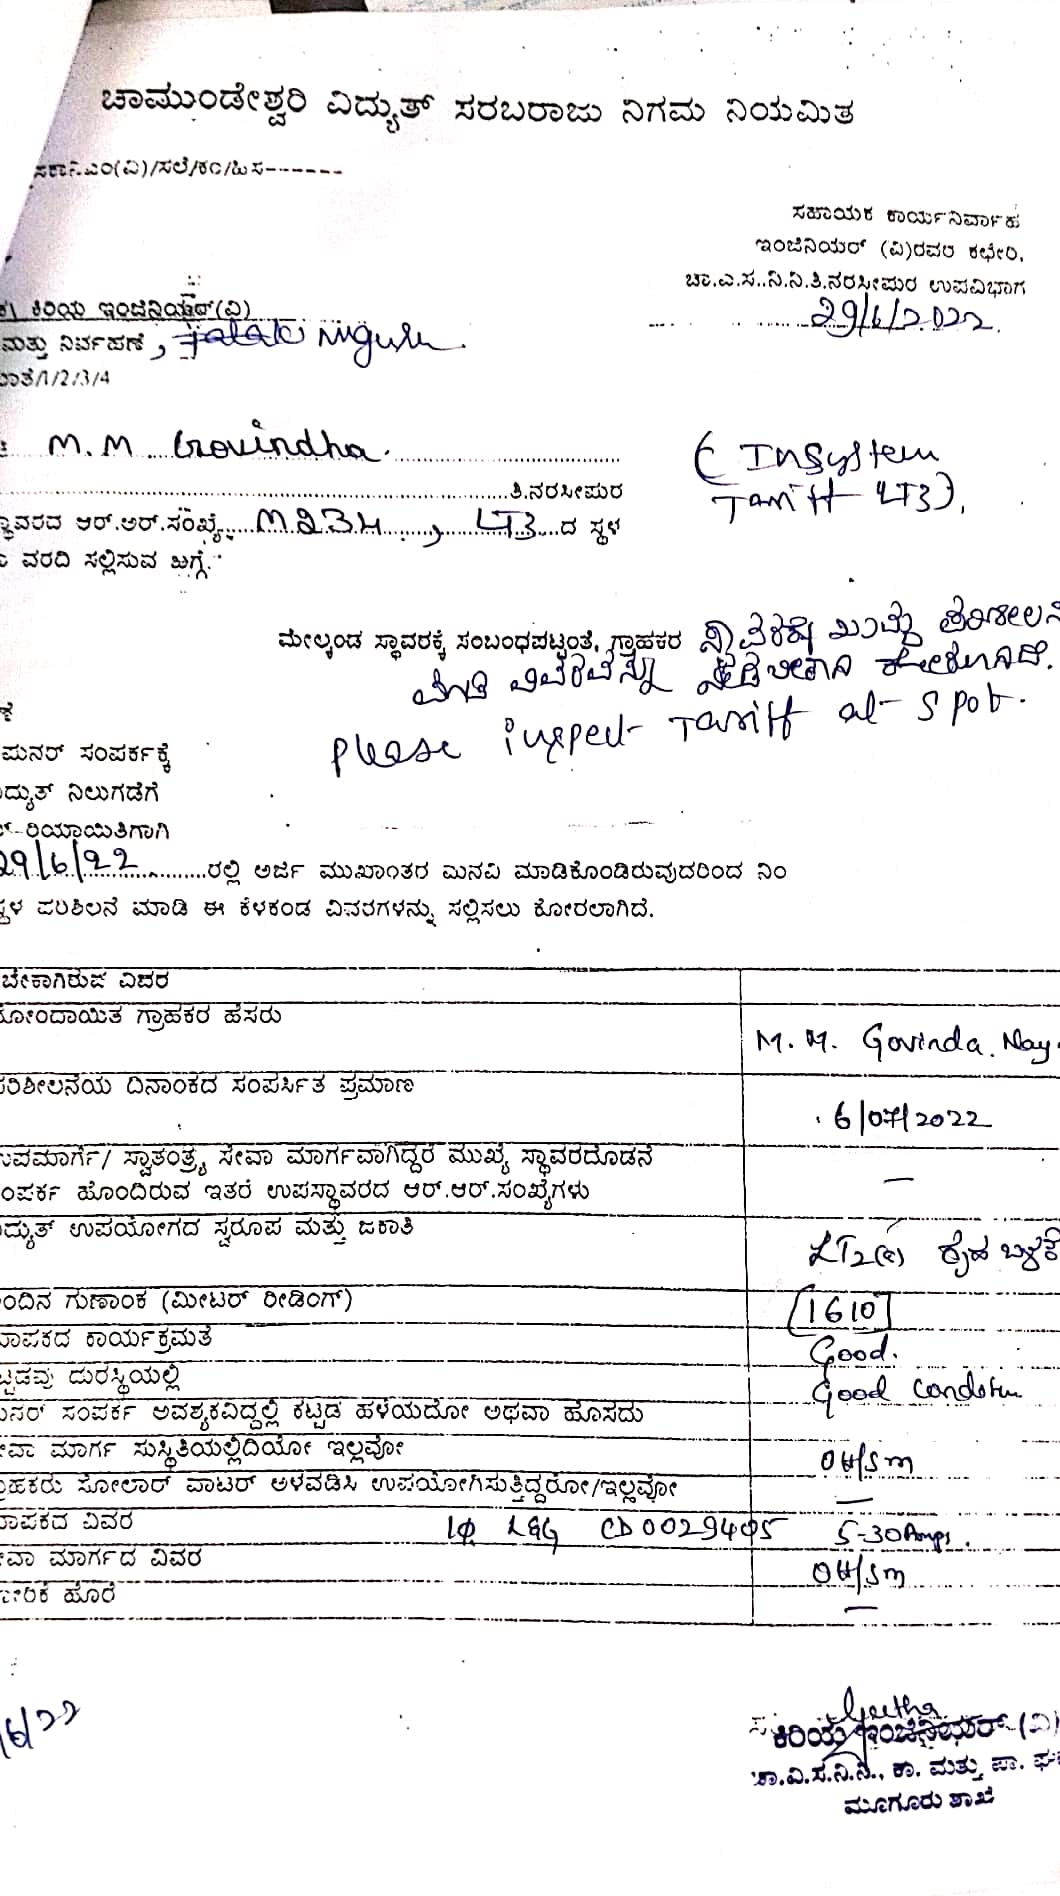 ಚಾಮುಂಡೇಶ್ವರಿ ವಿದ್ಯುತ್ ಸರಬರಾಜು ನಿಗಮ ನಿಯಮಿತ
ಸಕಾನಿಎಂ(ವಿ)/ಸಲೆ/ಕಂ/ಹಿಸ-------
ಸಹಾಯಕ ಕಾರ್ಯನಿರ್ವಾಹ
ಇಂಜಿನಿಯರ್ (ವಿ)ರವರ ಕಛೇರಿ,
ಚಾ.ಎ.ಸ..ನಿ.ನಿ.ತಿ.ನರಸೀಪುರ ಉಪವಿಭಾಗ
29/6/2022.
ಕಿರಿಯ ಇಂಜಿನಿಯರ್(ವಿ)
ಮತ್ತು ನಿರ್ವಹಣೆ,
/1/2/3/4
M.M Govindha.
( Insystem
Tariff LT3).
ತಿ.ನರಸೀಪುರ
ಸ್ಥಾವರದ ಆರ್.ಆರ್.ಸಂಖ್ಯೆ M234, LT3 ದ ಸ್ಥಳ
ವರದಿ ಸಲ್ಲಿಸುವ ಬಗ್ಗೆ.
ಮೇಲ್ಕಂಡ ಸ್ಥಾವರಕ್ಕೆ ಸಂಬಂಧಪಟ್ಟಂತೆ, ಗ್ರಾಹಕರ
Please inspect Tariff at spot.
ಸಂಪರ್ಕಕ್ಕೆ
ನಿಲುಗಡೆಗೆ
ರಿಯಾಯಿತಿಗಾಗಿ
29/6/22 ರಲ್ಲಿ ಅರ್ಜಿ ಮುಖಾಂತರ ಮನವಿ ಮಾಡಿಕೊಂಡಿರುವುದರಿಂದ
ಪರಿಶಿಲನೆ ಮಾಡಿ ಈ ಕೆಳಕಂಡ ವಿವರಗಳನ್ನು ಸಲ್ಲಿಸಲು ಕೋರಲಾಗಿದೆ.
ಬೇಕಾಗಿರುವ ವಿವರ
ನೋಂದಾಯಿತ ಗ್ರಾಹಕರ ಹೆಸರು
M. M. Govinda. Nay
ಪರಿಶೀಲನೆಯ ದಿನಾಂಕದ ಸಂಪರ್ಸಿತ ಪ್ರಮಾಣ
6/07/2022
ಉಪಮಾರ್ಗ/ ಸ್ವಾತಂತ್ರ್ಯ ಸೇವಾ ಮಾರ್ಗವಾಗಿದ್ದರೆ ಮುಖ್ಯ ಸ್ಥಾವರದೊಡನೆ
ಸಂಪರ್ಕ ಹೊಂದಿರುವ ಇತರೆ ಉಪಸ್ಥಾವರದ ಆರ್.ಆರ್.ಸಂಖ್ಯೆಗಳು
ವಿದ್ಯುತ್ ಉಪಯೋಗದ ಸ್ವರೂಪ ಮತ್ತು ಜಕಾತಿ
LT2(a) ಗೃಹ ಬಳಕೆ
ಇಂದಿನ ಗುಣಾಂಕ (ಮೀಟರ್ ರೀಡಿಂಗ್)
[1610]
ಮಾಪಕದ ಕಾರ್ಯಕ್ರಮತೆ
Good.
ಕಟ್ಟಡವು ದುರಸ್ಥಿಯಲ್ಲಿ
Good condition
ಸಂಪರ್ಕ ಅವಶ್ಯಕವಿದ್ದಲ್ಲಿ ಕಟ್ಟಡ ಹಳೆಯದೋ ಅಥವಾ ಹೊಸದು
ಸೇವಾ ಮಾರ್ಗ ಸುಸ್ಥಿತಿಯಲ್ಲಿದಿಯೋ ಇಲ್ಲವೋ
OH/Sm
ಗ್ರಾಹಕರು ಸೋಲಾರ್ ವಾಟರ್ ಅಳವಡಿಸಿ ಉಪಯೋಗಿಸುತ್ತಿದ್ದರೋ/ಇಲ್ಲವೋ
ಮಾಪಕದ ವಿವರ 1Φ L&G CD0029405 5-30Amps.
ಸೇವಾ ಮಾರ್ಗದ ವಿವರ OH/Sm
ಹೊರೆ
6/22
Geetha
ಕಿರಿಯ ಇಂಜಿನಿಯರ್ (ವಿ)
ಚಾ.ವಿ.ಸ.ನಿ.ನಿ., ಕಾ. ಮತ್ತು ಪಾ. ಘ
ಮೂಗೂರು ಶಾಖೆ